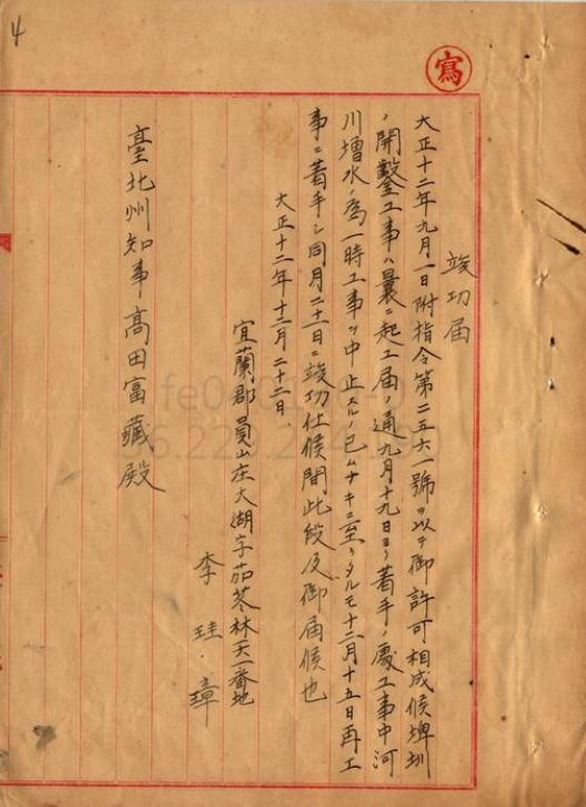 4
寫
竣功届
大正十二年九月一日附指令第二五六一號ヲ以テ御許可相成候埤圳
ノ開鑿工事ハ曩ニ起工届ノ通九月十九日ヨリ着手ノ處工事中河
川増水ノ為一時工事ヲ中止スルノ已ムナキニ至リタルモ十二月十五日再工
事ニ着手シ同月二十一日ニ竣功仕候間此段及御届候也
大正十二年十二月二十二日
宜蘭郡員山庄大湖字茄苳林 番地
李珪璋
臺北州知事高田富藏殿